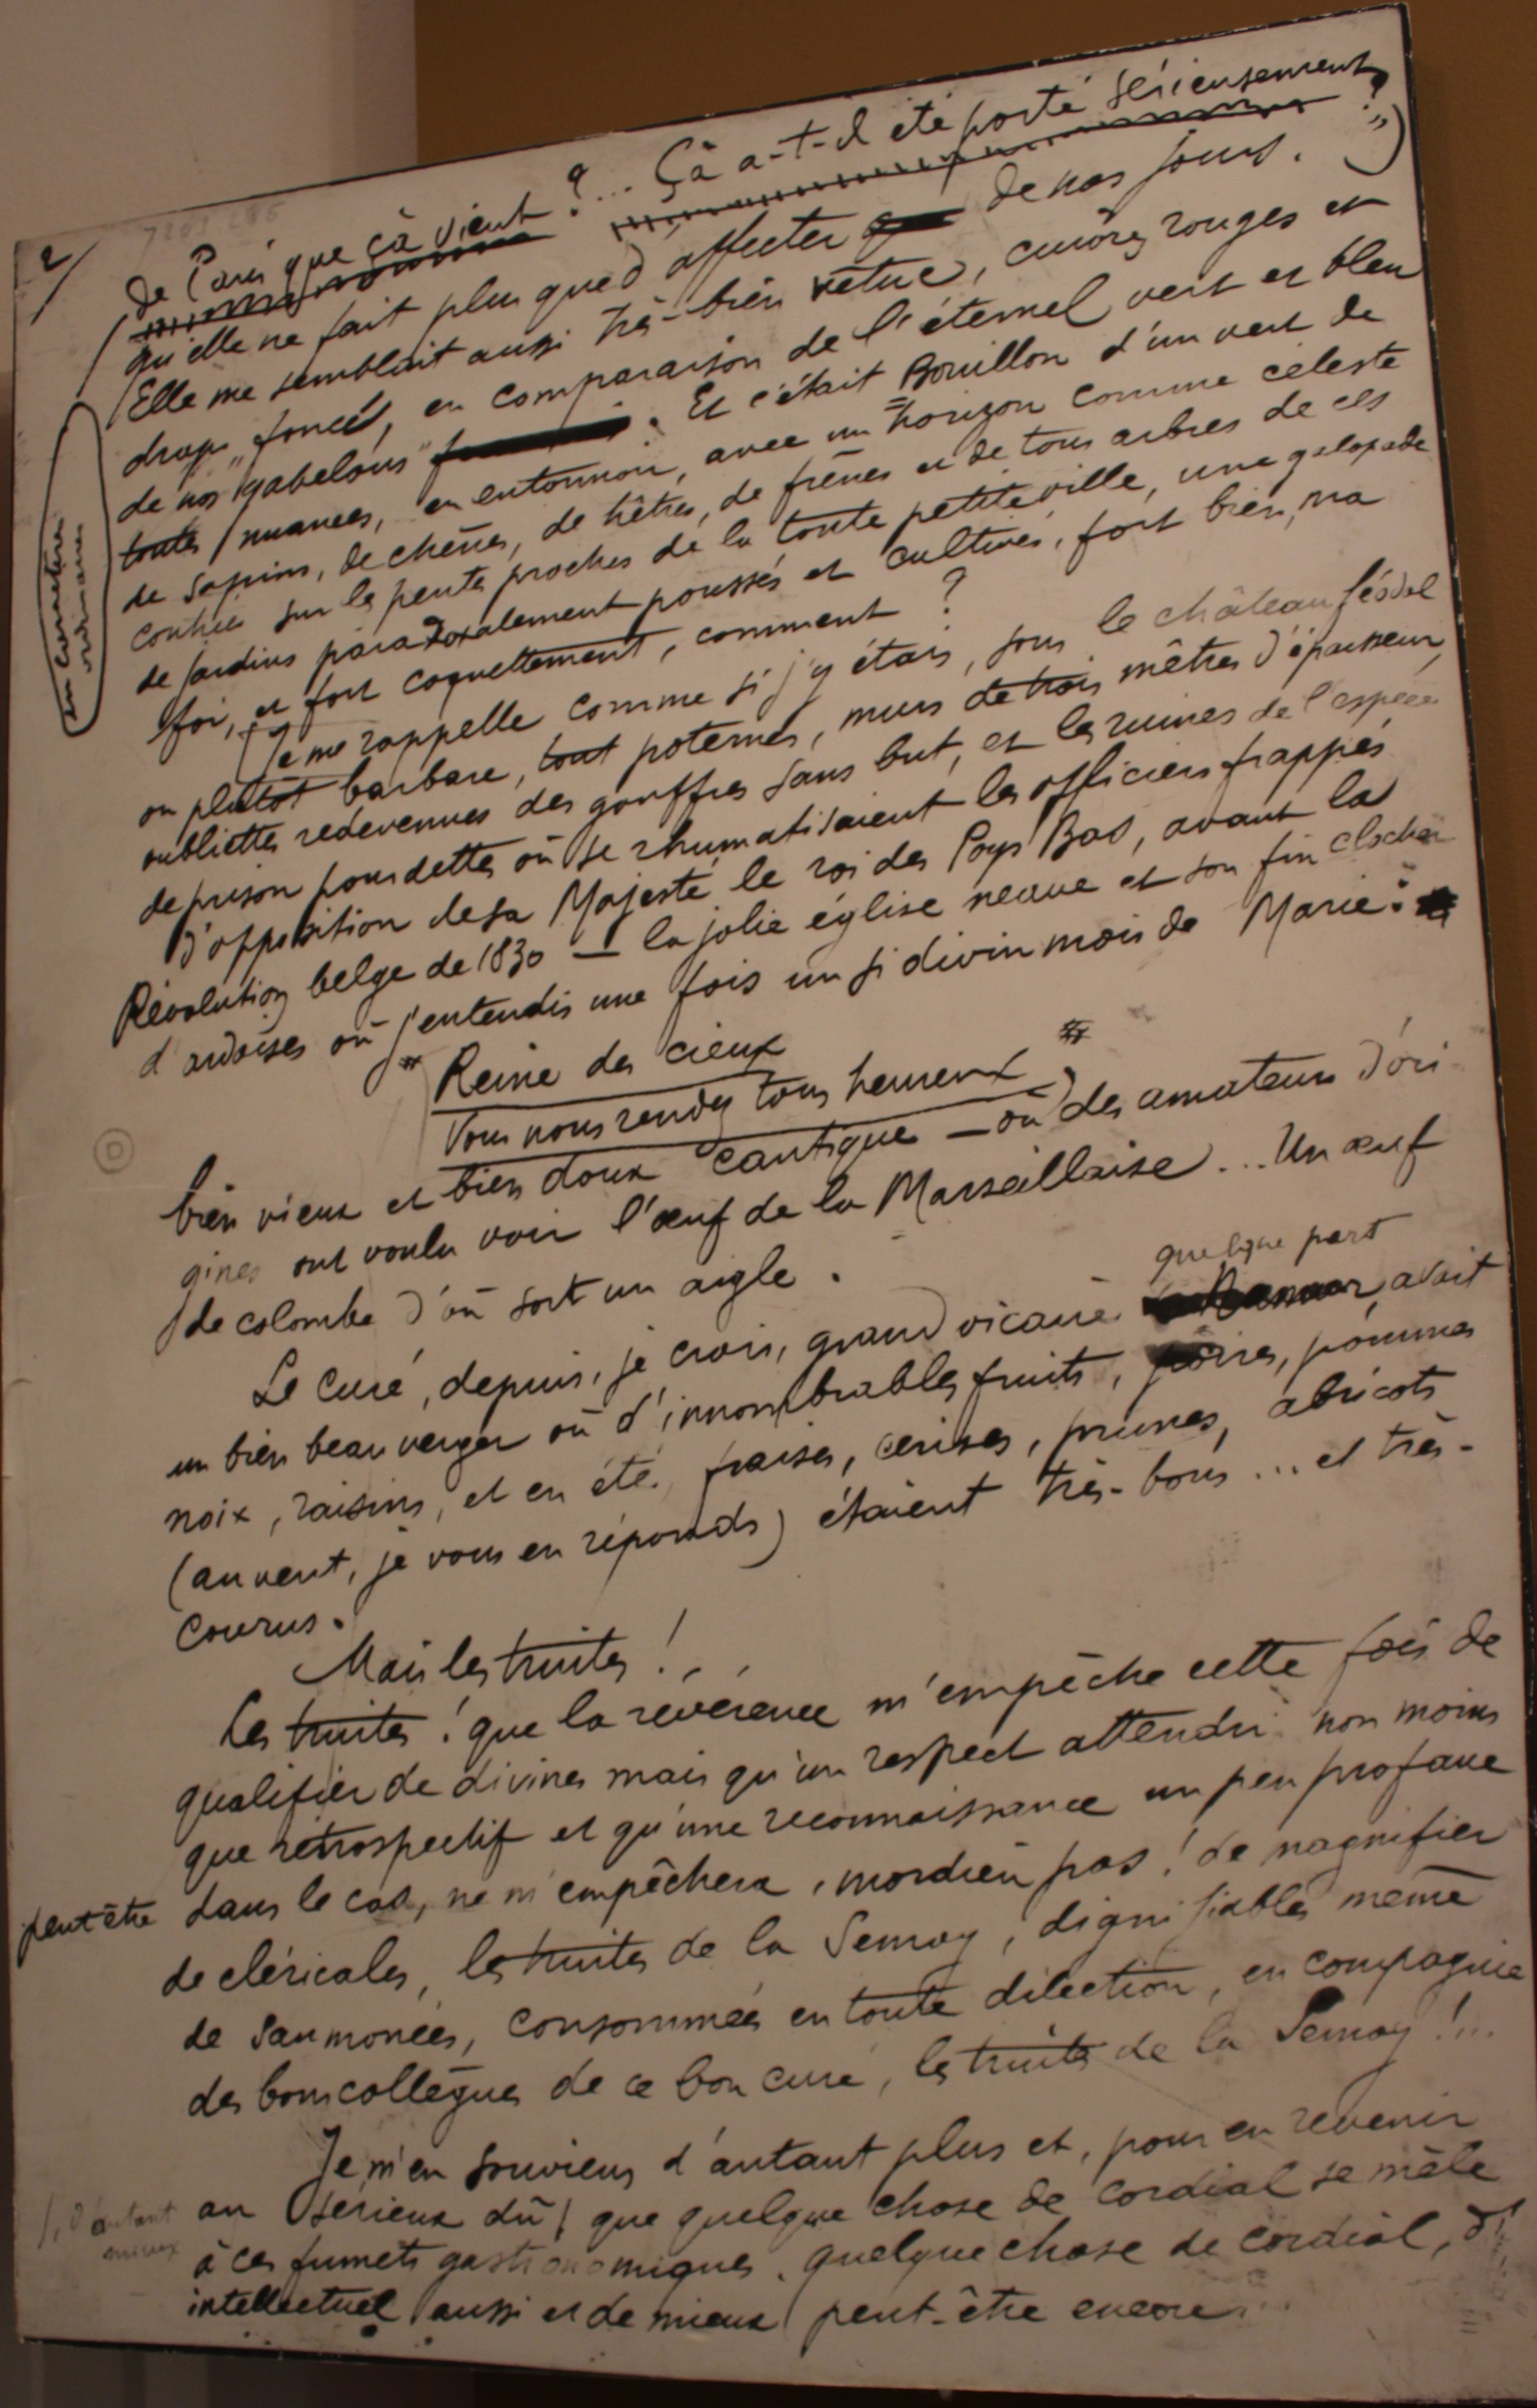 2/
de Paris que çà vient ?... Çà a-t-il été porté sérieusement ?
qu'elle ne fait plus que d'affecter de nos jours. ")
Elle me semblait aussi très-bien vêtue, cuirôs rouges et
drap „ foncé, en comparaison de l'éternel vert et bleu
de nos "gabelous" . Et c'était Bouillon d'un vert de
toutes nuances, en entonnoir, avec un horizon comme céleste
de sapins, de chênes, de hêtres, de frênes et de tous arbres de ces
contrées sur les pentes proches de la toute petite ville, une galopade
de jardins paradoxalement poussés et cultivés, fort bien, ma
foi, et fort coquettement, comment ?
en caractères
ordinaires
Je me rappelle comme si j'y étais, sous le château féodal
ou plutôt barbare, tout poternes, murs de trois mêtres d'épaisseur,
oubliettes redevenues des gouffres sans but, et les ruines de l'espèce
de prison pour dettes où se rhumatisaient les officiers frappés
d'opposition de sa Majesté le roi des Pays Bas, avant la
Révolution belge de 1830 — la jolie église neuve et son fin clocher
d'ardoises où j'entendis une fois un si divin mois de Marie :
* Reine des cieux
Vous nous rendez tous heureux *
bien vieux et bien doux cantique — où des amateurs d'ori-
gines ont voulu voir l'œuf de la Marseillaise ... Un œuf
de colombe d'où sort un aigle .
quelque part
Le curé, depuis, je crois, grand vicaire avait
un bien beau verger où d'innombrables fruits, poires, pommes
noix, raisins, et en été, fraises, cerises, prunes, abricots
(au vent, je vous en réponds) étaient très-bons ... et très-
courus.
Mais les truites !..
Les truites ! que la révérence m'empêche cette fois de
qualifier de divines mais qu'un respect attendri non moins
que rétrospectif et qu'une reconnaissance un peu profane
peut être dans le cas, ne m'empêchera, mordieu pas ! de magnifier
de cléricales, les truites de la Semoy, dignifiables même
de saumonées, consommées en toute dilection, en compagnie
des bons collègues de ce bon curé, les truites de la Semoy !...
Je m'en souviens d'autant plus et, pour en revenir
au sérieux dû, que quelque chose de cordial se mêle
, d'autant
mieux
à ces fumets gastronomiques. quelque chose de cordial, d'
intellectuel aussi et de mieux peut-être encore...